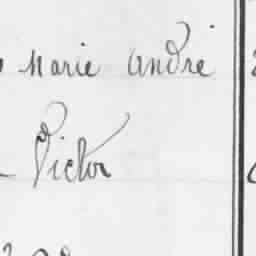 Marie André
Victor